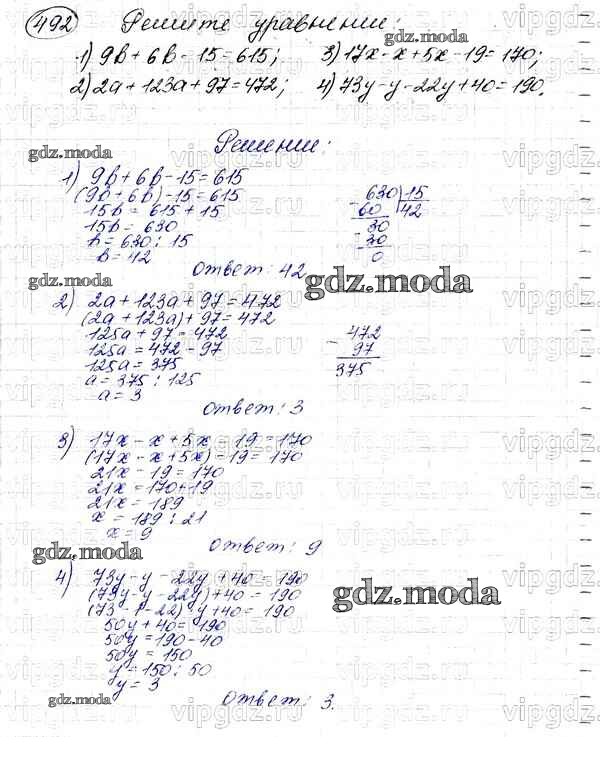 492 Решите уравнении:
1) 9b + 6b - 15 = 615; 3) 17x - x + 5x - 19 = 170;
2) 2a + 123a + 97 = 472; 4) 73y - y - 22y + 40 = 190.
Решении:
gdz.moda
1) 9b + 6b - 15 = 615
(9b + 6b) - 15 = 615
15b = 615 + 15
15b = 630
b = 630 : 15
b = 42
630 | 15
- 60 42
30
- 30
0
Ответ: 42
gdz.moda
gdz.moda
2) 2a + 123a + 97 = 472
(2a + 123a) + 97 = 472
125a + 97 = 472
125a = 472 - 97
125a = 375
a = 375 : 125
a = 3
- 472
97
375
gdz.moda
Ответ: 3
3) 17x - x + 5x - 19 = 170
(17x - x + 5x) - 19 = 170
21x - 19 = 170
21x = 170 + 19
21x = 189
x = 189 : 21
x = 9
Ответ: 9
gdz.moda
4) 73y - y - 22y + 40 = 190
(73y - y - 22y) + 40 = 190
(73 - 1 - 22) y + 40 = 190
50y + 40 = 190
50y = 190 - 40
50y = 150
y = 150 : 50
y = 3
gdz.moda
Ответ: 3.
gdz.moda
vipgdz.ru